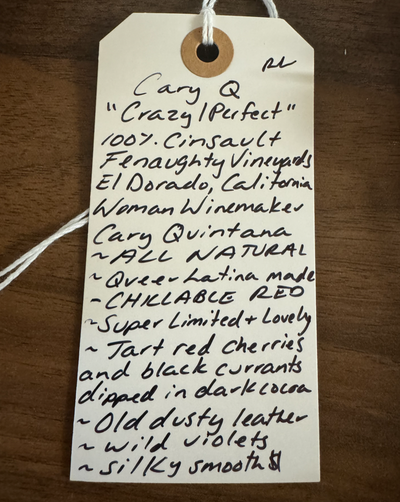 RL
Cary Q
"Crazy/Perfect"
100% Cinsault
Fenaughty Vineyards
El Dorado, California
Woman Winemaker
Cary Quintana
~ ALL NATURAL
~ Queer Latina made
~ CHILLABLE RED
~ Super Limited + Lovely
~ Tart red cherries
and black currants
dipped in dark cocoa
~ Old dusty leather
~ wild violets
~ silky smooth